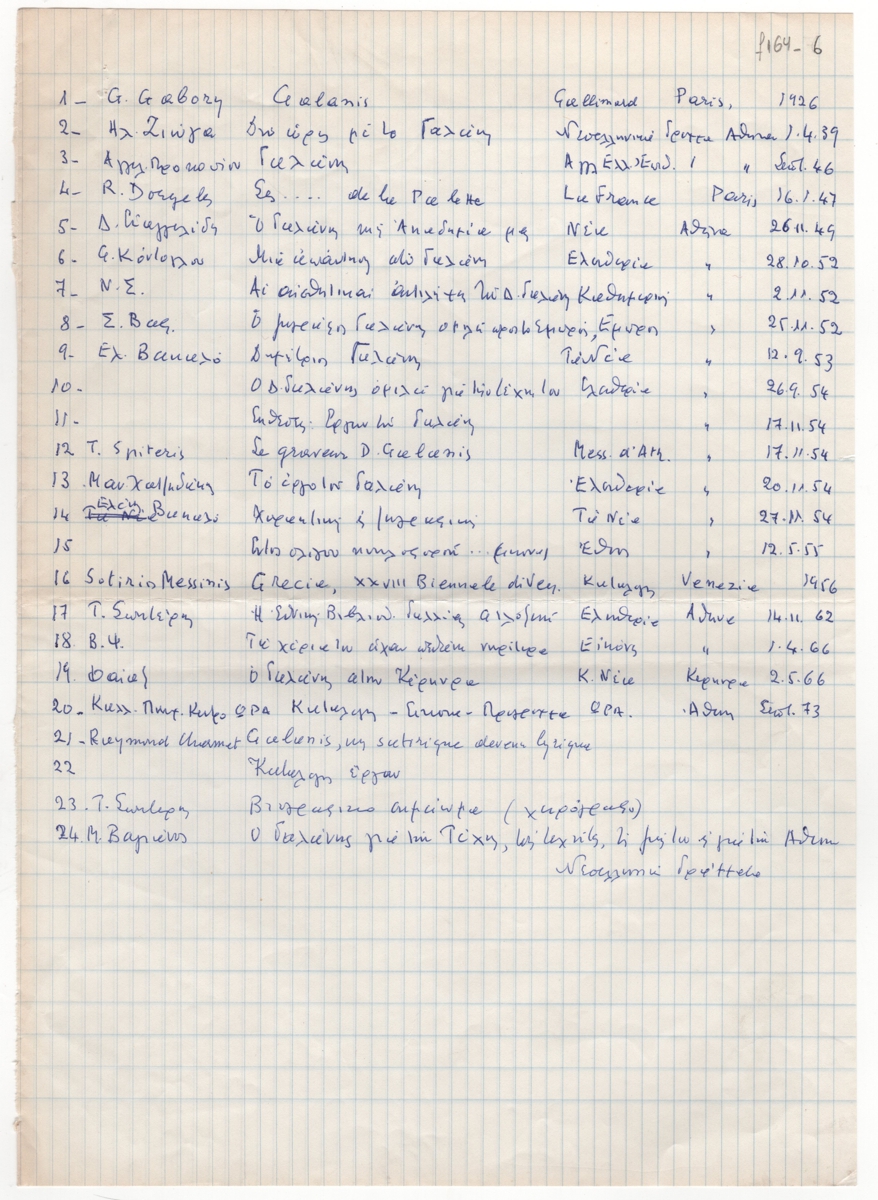 f164-6
1- G. Gabory Galanis Gallimard Paris, 1926
2- Ηλ. Ζιώγα Δυο ώρες με το Γαλάνη Νεοελληνικά Γράμματα Αθήνα 1.4.39
3- Αγγ. Προκοπίου Γαλάνης " Σεπτ. 46
4- R. Dorgelès de la Palette La France Paris 16.1.47
5- Δ. Ευαγγελίδη Ὁ Γαλάνης της Ακαδημία μας Νέα Αθήνα 26 11. 49
6- Φ. Κόντογλου Μιά απάντηση από Γαλάνη Ελευθερία " 28.10.52
7- Ν.Σ. Αἱ αισθητικαί αντιλήψεις του Δ. Γαλάνη Καθημερινή " 2.11.52
8- Σ. Βας. Ὁ Γαλάνης Εμπρος " 25.11.52
9- Ελ. Βακαλό Δημήτρης Γαλάνης Τα Νέα " 12.9.53
10- Ο Δ. Γαλάνης ὁμιλεί για την τέχνη του Ελευθερία " 26.9.54
11- Έκθεσις Έργων του Γαλάνη " 17.11.54
12 Τ. Spiteris Le graveur D. Galanis Mess. d'Ath. " 17.11.54
13 Μαν Χατζηδάκης Τό έργο του Γαλάνη Ελευθερία " 20.11.54
14 Ελένη Βακαλό Χαρακτική Τά Νέα " 27.11.54
15 Έθνος " 12.5.55
16 Sotiris Messinis Grecia, XXVIII Biennale di Ven. Κατάλογος Venezia 1956
17 Τ. Σπιτέρης Η Εθνική Βιβλιοθ. Γαλλίας Ελευθερία Αθήνα 14.11.62
18. Β.Ψ. Τά χέρια του είχαν Εικόνες " 1.4.66
19. Φαίαξ ὁ Γαλάνης στην Κέρκυρα Κ. Νέα Κέρκυρα 2.5.66
20- Καλλ. Πνευμ. Κέντρο ΩΡΑ Κατάλογος - Εικόνες - ΩΡΑ. Αθήνα Σεπτ. 73
21- Raymond Charmet Galanis, un satirique devenu lyrique
22 Κατάλογος έργων
23. Τ. Σπιτέρης Βιογραφικό σημείωμα (χειρόγραφο)
24. Μ. Βαμιάνος Ο Γαλάνης για την Τέχνη, τους τεχνίτες, για την Αθήνα
Νεοελληνικά Γράμματα